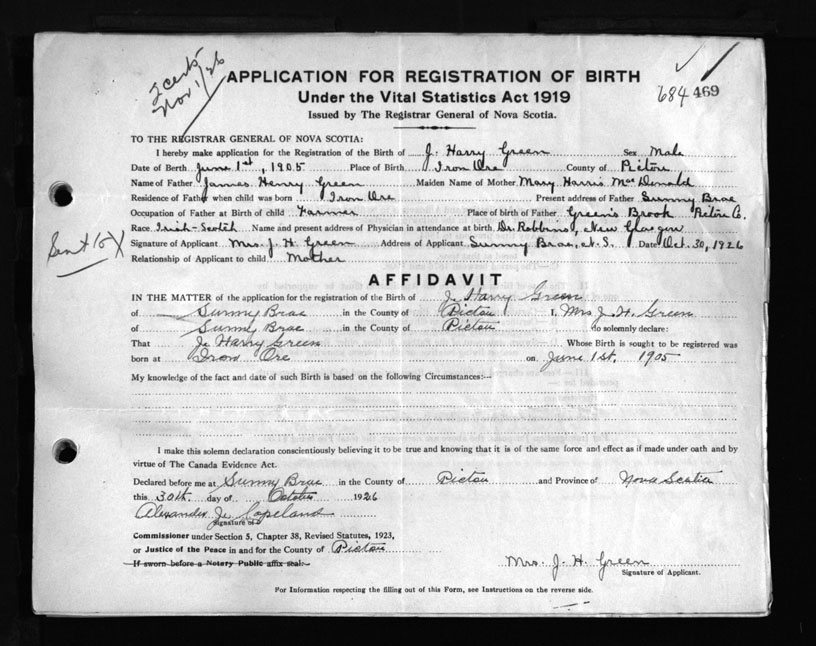 2 certs
Nov 1/26
APPLICATION FOR REGISTRATION OF BIRTH
684 469
Under the Vital Statistics Act 1919
Issued by The Registrar General of Nova Scotia.
TO THE REGISTRAR GENERAL OF NOVA SCOTIA:
I hereby make application for the Registration of the Birth of J. Harry Green Sex Male
Date of Birth June 1st, 1905 Place of Birth Iron Ore County of Pictou
Name of Father James Henry Green Maiden Name of Mother Mary Harris MacDonald
Residence of Father when child was born Iron Ore Present address of Father Sunny Brae
Occupation of Father at Birth of child Farmer Place of birth of Father Green's Brook Pictou Co.
Race Irish-Scotch Name and present address of Physician in attendance at birth Dr. Robbins, New Glasgow
Signature of Applicant Mrs. J. H. Green Address of Applicant Sunny Brae, N.S. Date Oct. 30, 1926
Relationship of Applicant to child Mother
AFFIDAVIT
IN THE MATTER of the application for the registration of the Birth of J. Harry Green
of Sunny Brae in the County of Pictou I, Mrs J. H. Green
of Sunny Brae in the County of Pictou do solemnly declare:
That J. Harry Green Whose Birth is sought to be registered was
born at Iron Ore on June 1st. 1905
My knowledge of the fact and date of such Birth is based on the following Circumstances:--
I make this solemn declaration conscientiously believing it to be true and knowing that it is of the same force and effect as if made under oath and by
virtue of The Canada Evidence Act.
Declared before me at Sunny Brae in the County of Pictou and Province of Nova Scotia
this 30th. day of October 1926
Alexander J. Copeland
Signature of
Commissioner under Section 5, Chapter 38, Revised Statutes, 1923,
or Justice of the Peace in and for the County of Pictou
If sworn before a Notary Public affix seal.
Mrs. J. H. Green
Signature of Applicant.
For Information respecting the filling out of this Form, see Instructions on the reverse side.